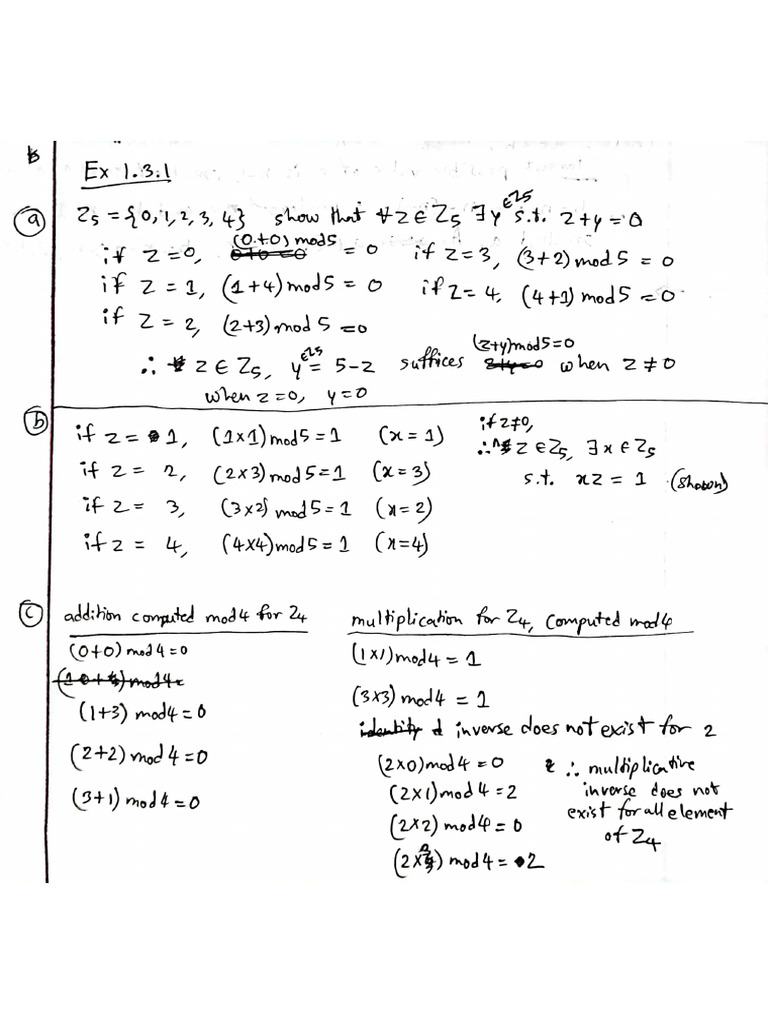 Ex 1.3.1
(a) Z5 = {0, 1, 2, 3, 4} show that ∀z ∈ Z5 ∃y ∈Z5 s.t. z+y = 0
if z=0, (0+0) mod5 = 0 if z=3, (3+2) mod 5 = 0
if z = 1, (1+4) mod5 = 0 if z=4, (4+1) mod5 = 0
if z = 2, (2+3) mod 5 = 0
∴ z ∈ Z5, y ∈Z5 = 5-z suffices (z+y)mod5=0 when z ≠ 0
when z=0, y=0
(b) if z = 1, (1×1) mod5 = 1 (x = 1) if z≠0,
∴ ∀z ∈ Z5, ∃x ∈ Z5
if z = 2, (2×3) mod5 = 1 (x = 3)
s.t. xz = 1 (shown)
if z = 3, (3×2) mod5 = 1 (x=2)
if z = 4, (4×4) mod5 = 1 (x=4)
(c) addition computed mod4 for Z4
(0+0) mod4 = 0
(1+3) mod4 = 0
(2+2) mod4 = 0
(3+1) mod4 = 0
multiplication for Z4, computed mod4
(1×1) mod4 = 1
(3×3) mod4 = 1
inverse does not exist for 2
(2×0) mod4 = 0
(2×1) mod4 = 2
(2×2) mod4 = 0
(2×3) mod4 = 2
∴ multiplicative
inverse does not
exist for all element
of Z4